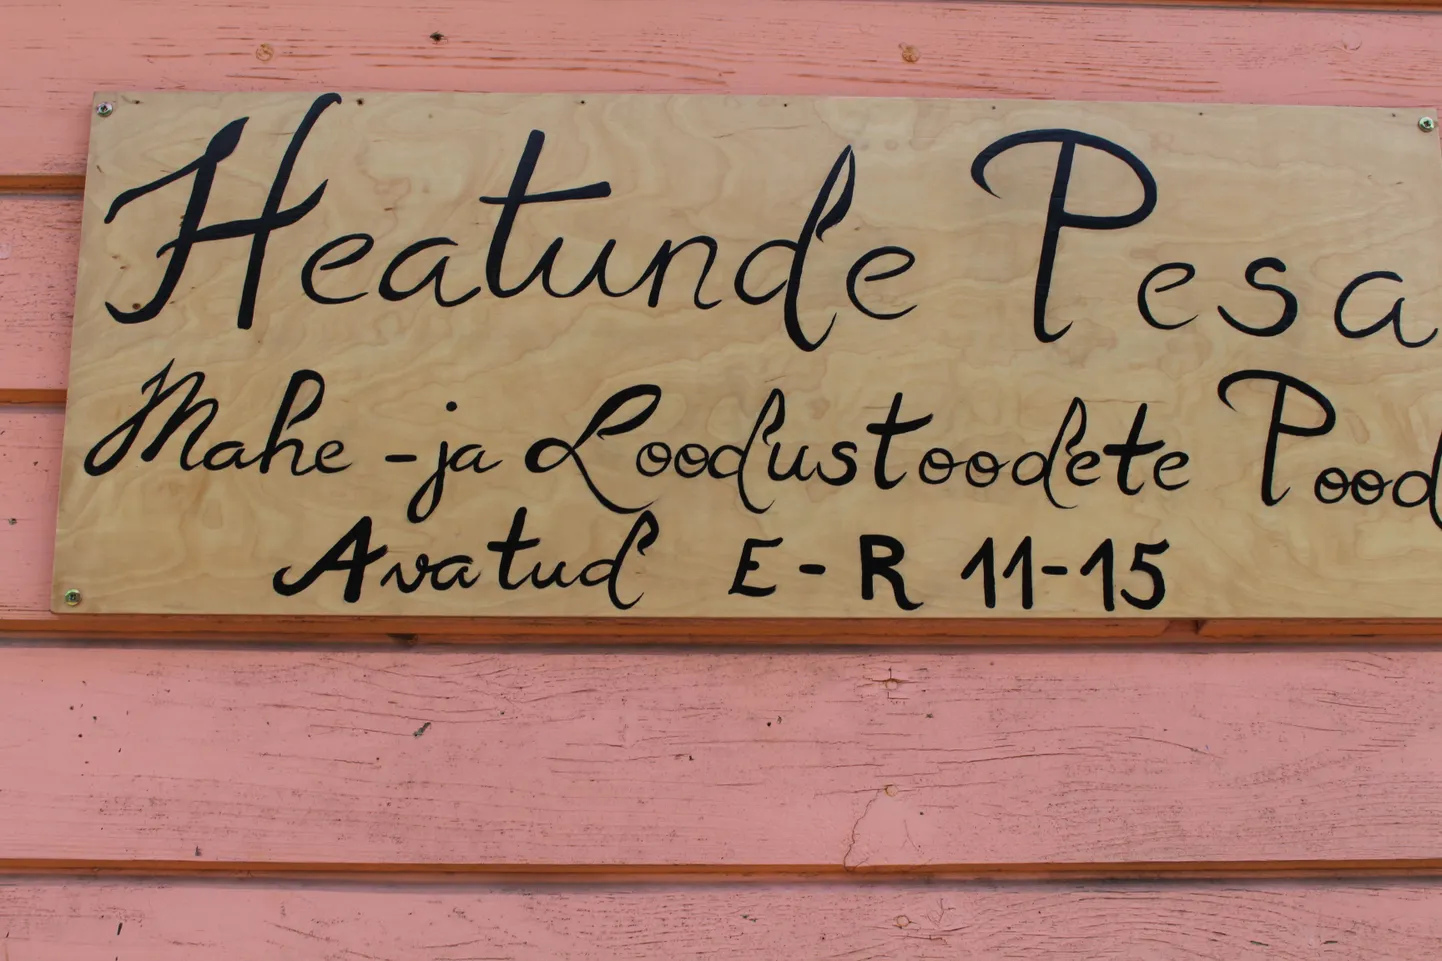 Heatunde Pesa
Mahe -ja Loodustoodete Pood
Avatud E-R 11-15